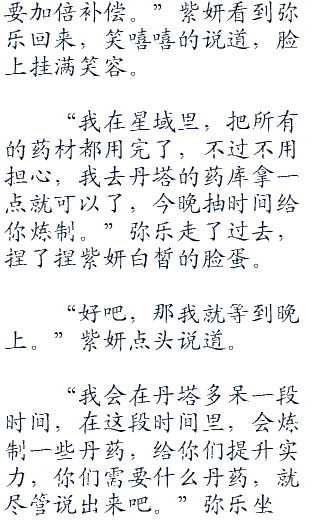 要加倍补偿。”紫妍看到弥
乐回来，笑嘻嘻的说道，脸
上挂满笑容。
“我在星域里，把所有
的药材都用完了，不过不用
担心，我去丹塔的药库拿一
点就可以了，今晚抽时间给
你炼制。”弥乐走了过去，
捏了捏紫妍白皙的脸蛋。
“好吧，那我就等到晚
上。”紫妍点头说道。
“我会在丹塔多呆一段
时间，在这段时间里，会炼
制一些丹药，给你们提升实
力，你们需要什么丹药，就
尽管说出来吧。”弥乐坐